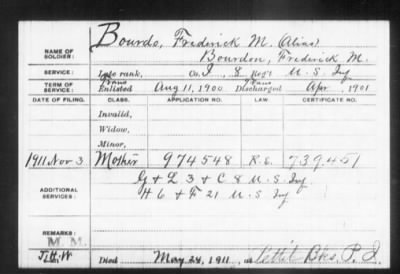 Bourdo, Frederick M. (Alias)
NAME OF SOLDIER: Bourdon, Frederick M.
SERVICE: Late rank, Co. I, 8 Reg't U. S. Inf
TERM OF SERVICE: Trans Enlisted Aug 11, 1900 Trans Discharged Apr , 1901
DATE OF FILING. CLASS. APPLICATION NO. LAW. CERTIFICATE NO.
Invalid,
Widow,
Minor,
1911 Nov 3 Mother 974548 R.S. 739451
ADDITIONAL SERVICES: G + L 3 + C 8 U. S. Inf
H 6 + F 21 U. S. Inf
REMARKS:
M. M.
Died May 24, 1911, at Pettit Bks, P. I.